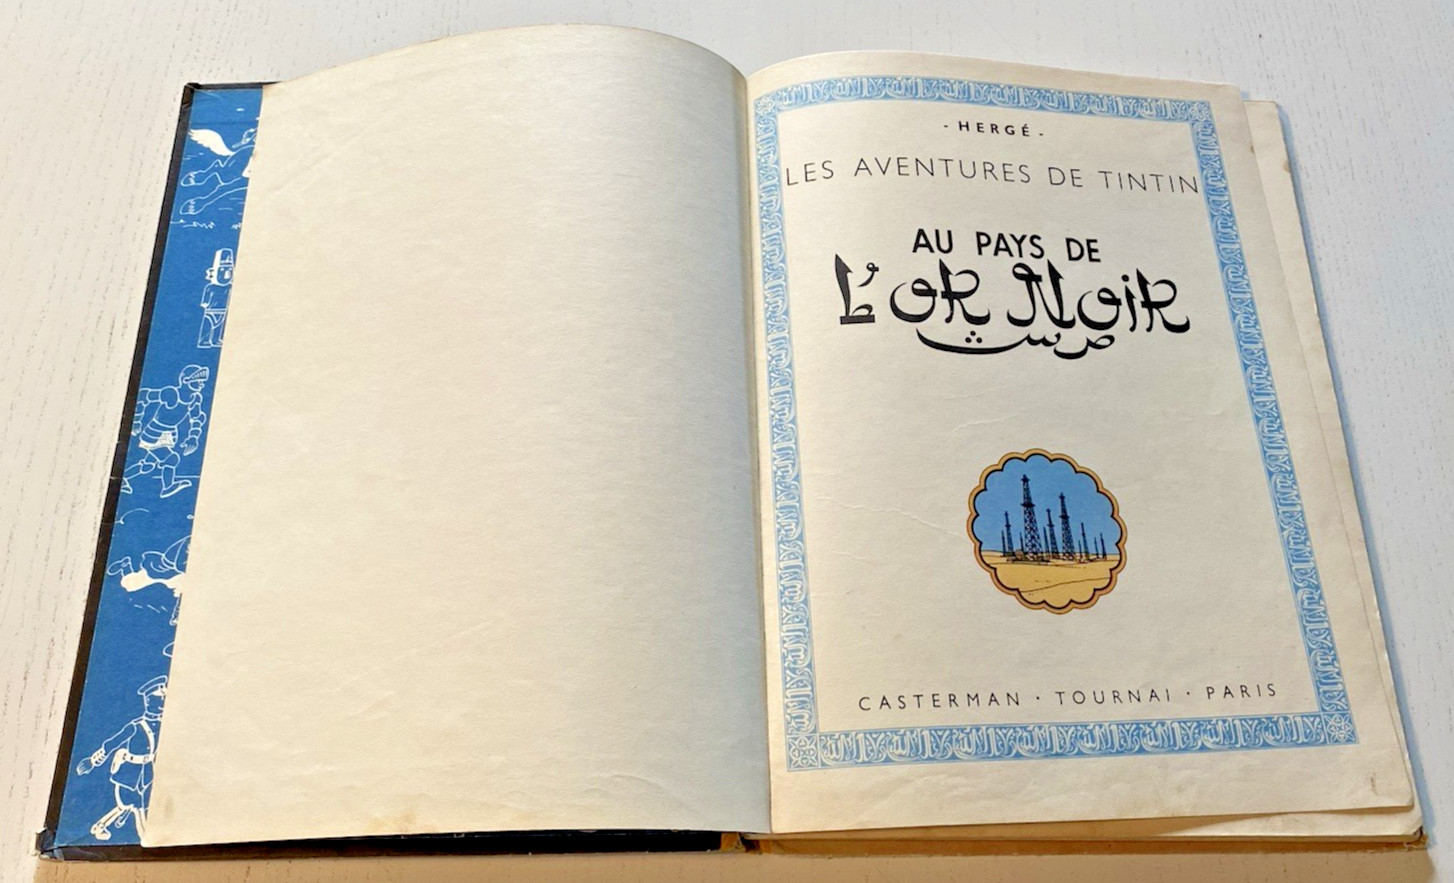 - HERGÉ -
LES AVENTURES DE TINTIN
AU PAYS DE
L'OR NOIR
CASTERMAN · TOURNAI · PARIS